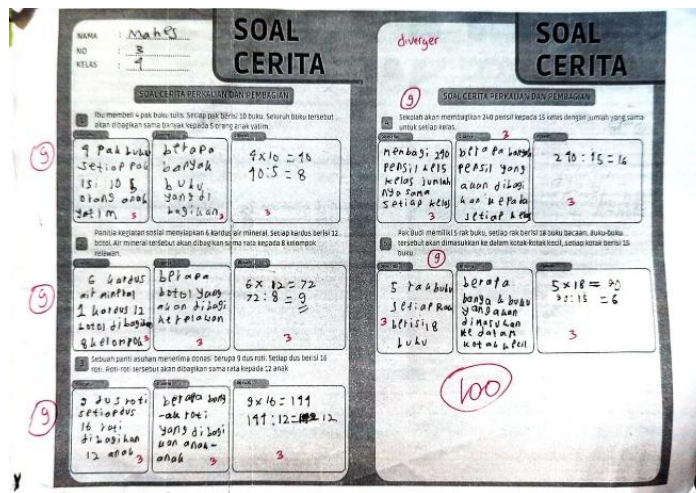 NAMA : Mahes
NO : 3
KELAS : 4
SOAL
CERITA
SOAL CERITA PERKALIAN DAN PEMBAGIAN
1
Ibu membeli 4 pak buku tulis. Setiap pak berisi 10 buku. Seluruh buku tersebut
akan dibagikan sama banyak kepada 5 orang anak yatim.
9
4 pak buku
setiap pak
isi 10 5
orang anak
yatim
3
berapa
banyak
buku
yang di
bagikan
3
4 x 10 = 40
40:5 = 8
3
2
Panitia kegiatan sosial menyiapkan 6 kardus air mineral. Setiap kardus berisi 12
botol. Air mineral tersebut akan dibagikan sama rata kepada 8 kelompok
relawan.
9
6 kardus
air mineral
1 kardus 12
botol dibagikan
8 kelompok
3
berapa
botol yang
akan dibagi
ke relawan
3
6 x 12 = 72
72 : 8 = 9
3
3
Sebuah panti asuhan menerima donasi berupa 9 dus roti. Setiap dus berisi 16
roti. Roti-roti tersebut akan dibagikan sama rata kepada 12 anak
9
9 dus roti
setiap dus
16 roti
dibagikan
12 anak
3
berapa bany
-ak roti
yang dibagi
kan anak-
anak
3
9 x 16 = 144
144 : 12 = 12
3
diverger
SOAL
CERITA
9
SOAL CERITA PERKALIAN DAN PEMBAGIAN
4
Sekolah akan membagikan 240 pensil kepada 15 kelas dengan jumlah yang sama
untuk setiap kelas.
membagi 240
pensil kelas
jumlah
nya sama
setiap kelas
3
3
berapa banyak
pensil yang
akan dibagi
kan kepada
setiap kelas
240 : 15 = 16
3
Pak Budi memiliki 5 rak buku, setiap rak berisi 18 buku bacaan. Buku-buku
tersebut akan dimasukkan ke dalam kotak-kotak kecil, setiap kotak berisi 15
buku.
9
5 rak buku
setiap Rak
berisi 18
buku
3
berapa
banyak buku
yang akan
dimasukan
ke dalam
kotak kecil
5 x 18 = 90
90 : 15 = 6
3
100